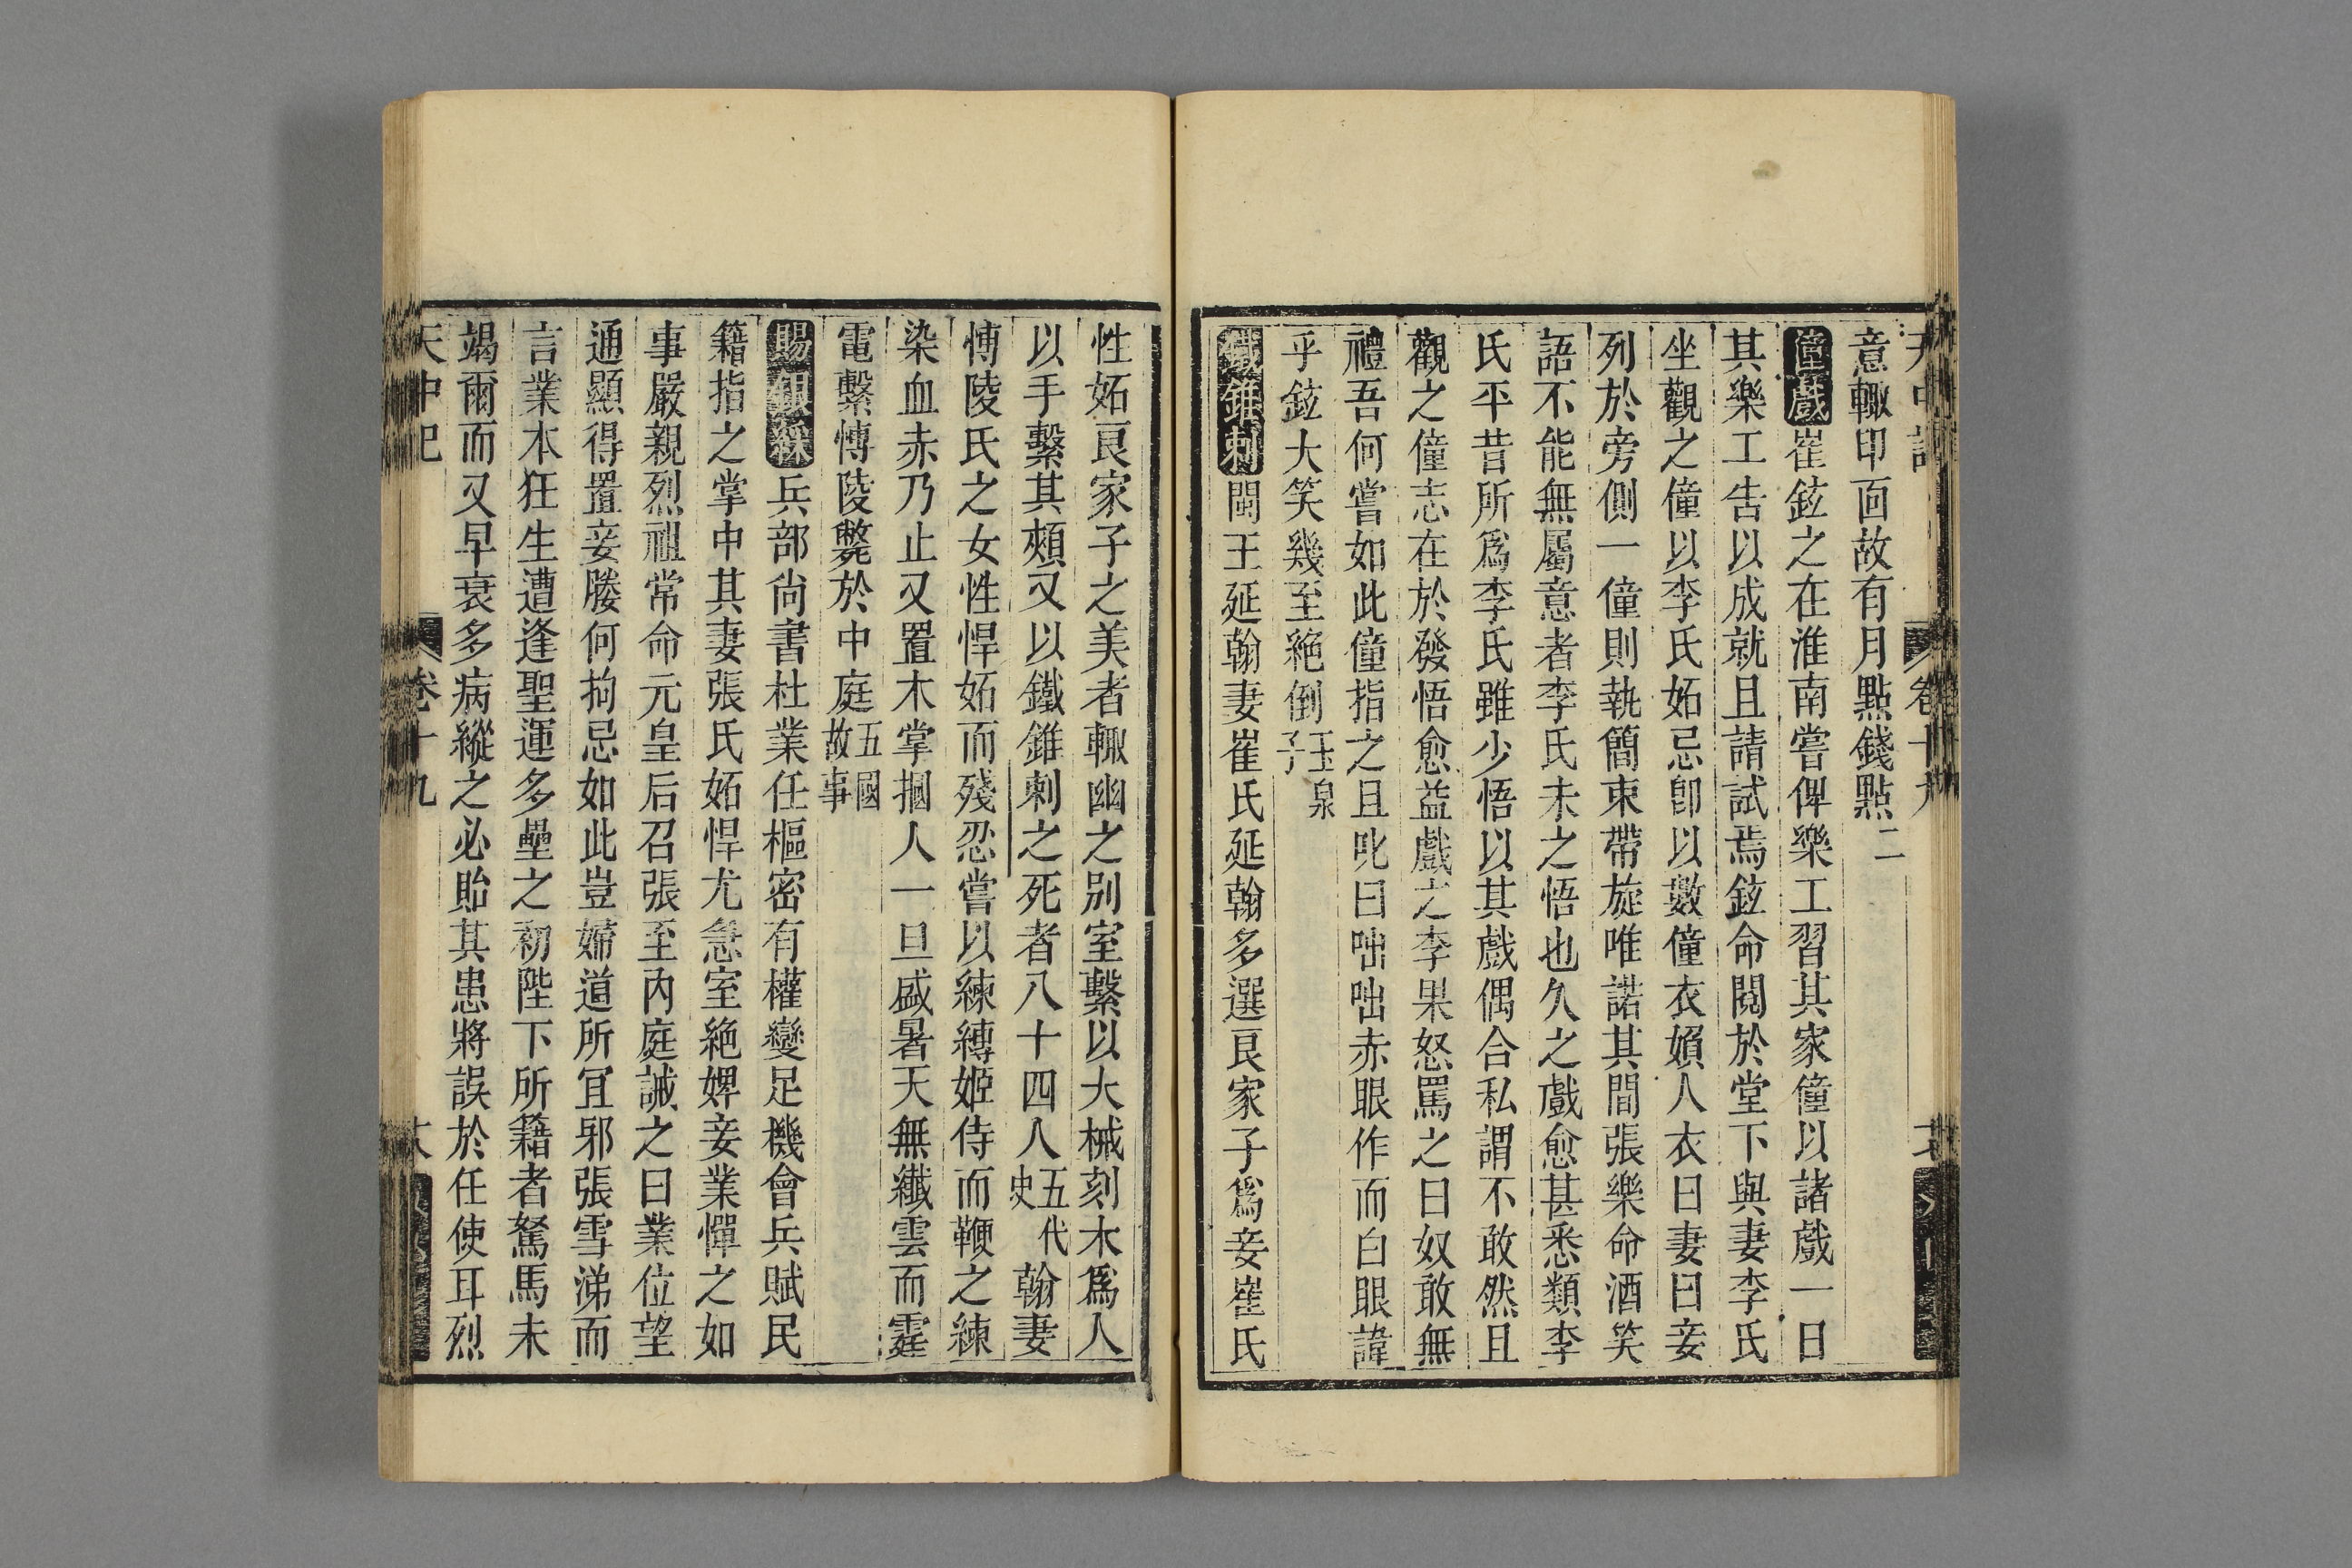 意輙印面故有月點錢點二
僮戲崔鉉之在淮南嘗俾樂工習其家僮以諸戲一日
其樂工告以成就且請試焉鉉命閱於堂下與妻李氏
坐觀之僮以李氏妬忌卽以數僮衣婦人衣曰妻曰妾
列於旁側一僮則執簡束帶旋唯諾其間張樂命酒笑
語不能無屬意者李氏未之悟也久之戲愈甚悉類李
氏平昔所爲李氏雖少悟以其戲偶合私謂不敢然且
觀之僮志在於發悟愈益戲之李果怒罵之曰奴敢無
禮吾何嘗如此僮指之且叱曰咄咄赤眼作而白眼諱
乎鉉大笑幾至絶倒玉泉子
鐵錐刺閩王延翰妻崔氏延翰多選良家子爲妾崔氏
性妬良家子之美者輙幽之别室繫以大械刻木爲人
以手繫其頰又以鐵錐刺之死者八十四人五代史翰妻
愽陵氏之女性悍妬而殘忍嘗以練縛姬侍而鞭之練
染血赤乃止又置木掌摑人一旦盛暑天無纎雲而霆
電繫愽陵斃於中庭五國故事
賜銀綵兵部尚書杜業任樞密有權變足機會兵賦民
籍指之掌中其妻張氏妬悍尤急室絶婢妾業憚之如
事嚴親烈祖常命元皇后召張至内庭誡之曰業位望
通顯得置妾媵何拘忌如此豈婦道所宜邪張雪涕而
言業本狂生遭逢聖運多壘之初陛下所籍者駑馬未
竭爾而又早衰多病縱之必貽其患將誤於任使耳烈
天中記 卷十九